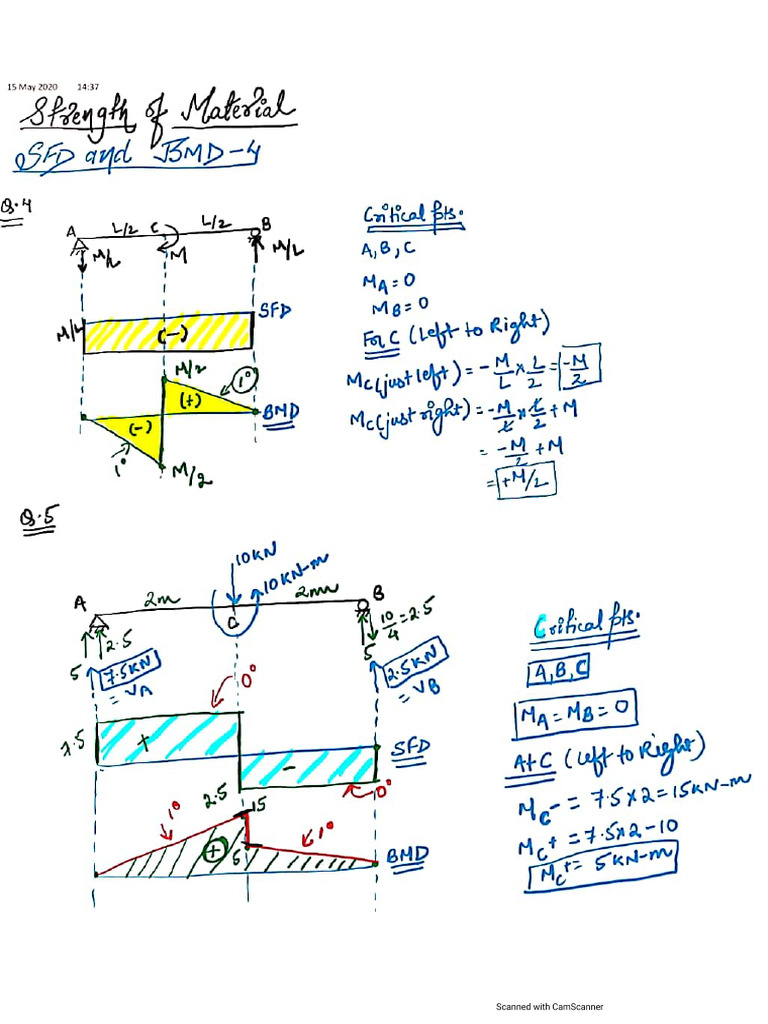 15 May 2020 14:37
Strength of Material
SFD and BMD-4
Q.4
A L/2 C L/2 B
M/L M M/L
SFD
M/L (-)
M/2
(+) 1°
BMD
(-)
1° M/2
Critical pts.
A, B, C
MA = 0
MB = 0
For C (Left to Right)
MC(just left) = -M/L × L/2 = -M/2
MC(just right) = -M/L × L/2 + M
= -M/2 + M
= +M/2
Q.5
10KN
10KN-m
A 2m C 2m B
5 2.5 5 10/4 = 2.5
7.5KN = VA
2.5KN = VB
0°
7.5 +
SFD
-
2.5 0°
15
1° 1°
+ 5
BMD
Critical pts.
A, B, C
MA = MB = 0
At C (Left to Right)
MC- = 7.5×2 = 15KN-m
MC+ = 7.5×2-10
MC+ = 5KN-m
Scanned with CamScanner